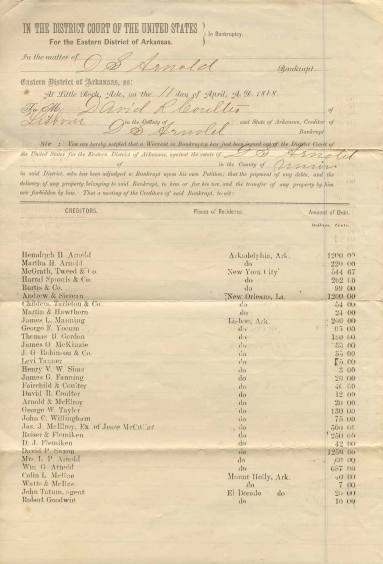 IN THE DISTRICT COURT OF THE UNITED STATES
For the Eastern District of Arkansas.
In Bankruptcy.
In the matter of
Arnold Bankrupt
Eastern District of Arkansas, ss:
At Little Rock, Ark., on the 11 day of April, A. D. 1868.
To Mr. David R Coulter of
Lisbon in the County of and State of Arkansas, Creditor of
Arnold Bankrupt
Sir: You are hereby notified that a Warrant in Bankruptcy has just been issued out of the District Court of
the United States for the Eastern District of Arkansas, against the estate of Arnold
of in the County of Union
in said District, who has been adjudged a Bankrupt upon his own Petition; that the payment of any debts, and the
delivery of any property belonging to said Bankrupt, to him or for his use, and the transfer of any property by him
are forbidden by law. That a meeting of the Creditors of said Bankrupt, to wit:
CREDITORS. Places of Residence. Amount of Debt.
Dollars. Cents.
Hendrich H. Arnold Arkadelphia, Ark. 1200 00
Martha H. Arnold do 220 00
McGrath, Tweed & Co. New York City 544 67
Harral do 202 00
Burtis & Co. do 99 00
Andrew & New Orleans, La. 1200 00
Childers, Tarleton & Co. do 54 00
Martin & Hawthorn do 24 00
James L. Manning Lisbon, Ark. 200 00
George F. Yocum do 00
Thomas B. Gordon do 00
James O. McKinzie do 00
J. G. Robinson & Co. do 00
Levi Tanner do 00
Henry V. W. Sims do 00
James G. Fanning do 20 00
Fairchild & Coulter do 00
David R. Coulter do 12 00
Arnold & McElroy do 20 00
George W. Tayler do 130 00
John C. Willingham do 75 00
Jas. J. McElroy, Ex. of do
Reiser & Flemiken do 250 00
D. J. Flemiken do 42 00
David P. do 1250 00
Mrs. L. P. Arnold do 00
Wm. G. Arnold do 687 00
Colin L. McRae Mount Holly, Ark. 00
Watts & McRae do 7 00
John Tatum, agent El Dorado do 20 00
Robert Goodwin do 10 00